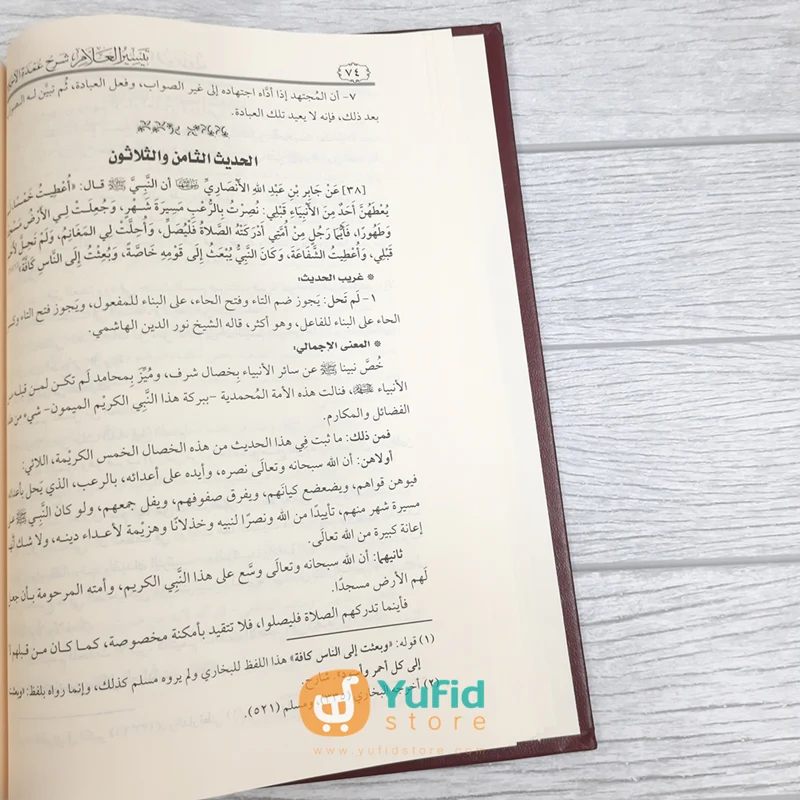 تيسير العلام شرح عمدة
٧٤
٧- أن المُجتهد إذا أدَّاه اجتهاده إلى غير الصواب، وفعل العبادة، ثُم تبيَّن له
بعد ذلك، فإنه لا يعيد تلك العبادة.
الحديث الثامن والثلاثون
[٣٨] عَنْ جَابِرِ بْنِ عَبْدِ اللهِ الأَنْصَارِيِّ أن النَّبِيَّ ﷺ قال: «أُعْطِيتُ خَمْسًا
يُعْطَهُنَّ أَحَدٌ مِنَ الأَنْبِيَاءِ قَبْلِي: نُصِرْتُ بِالرُّعْبِ مَسِيرَةَ شَهْرٍ، وَجُعِلَتْ لِي الأَرْضُ
وَطَهُورًا، فَأَيُّمَا رَجُلٍ مِنْ أُمَّتِي أَدْرَكَتْهُ الصَّلاةُ فَلْيُصَلِّ، وَأُحِلَّتْ لِي المَغَانِمُ، وَلَمْ تَحِلَّ
قَبْلِي، وَأُعْطِيتُ الشَّفَاعَةَ، وَكَانَ النَّبِيُّ يُبْعَثُ إِلَى قَوْمِهِ خَاصَّةً، وَبُعِثْتُ إِلَى النَّاسِ كَافَّةً
* غريب الحديث:
١- لَم تَحل: يَجوز ضم التاء وفتح الحاء، على البناء للمفعول، ويَجوز فتح التاء
الحاء على البناء للفاعل، وهو أكثر، قاله الشيخ نور الدين الهاشمي.
* المعنى الإجمالي:
خُصَّ نبينا ﷺ عن سائر الأنبياء بِخصال شرف، ومُيِّزَ بِمحامد لَم تكن لمن قبله
الأنبياء، فنالت هذه الأمة المُحمدية -ببركة هذا النَّبي الكريْم الميمون- شيء من
الفضائل والمكارم.
فمن ذلك: ما ثبت فِي هذا الحديث من هذه الخصال الخمس الكريْمة، اللاتي:
أولاهن: أن الله سبحانه وتعالَى نصره، وأيده على أعدائه، بالرعب، الذي يَحل
فيوهن قواهم، ويضعضع كيانَهم، ويفرق صفوفهم، ويفل جمعهم، ولو كان النَّبِي ﷺ
مسيرة شهر منهم، تأييدًا من الله ونصرًا لنبيه وخذلانًا وهزيْمة لأعداء دينه، ولا شك
إعانة كبيرة من الله تعالَى.
ثانيهما: أن الله سبحانه وتعالَى وسَّع على هذا النَّبِي الكريم، وأمته المرحومة بأن جعل
لَهم الأرض مسجدًا.
فأينما تدركهم الصلاة فليصلوا، فلا تتقيد بأمكنة مخصوصة، كما كان من قبلهم
(١) قوله: «وبعثت إلى الناس كافة» هذا اللفظ للبخاري ولم يروه مسلم كذلك، وإنما رواه بلفظ:
إلى كل أحمر وأسود». شارح.
(٢) أخرجه البخاري ومسلم (٥٢١).
YuFid
store
www.yufidstore.com